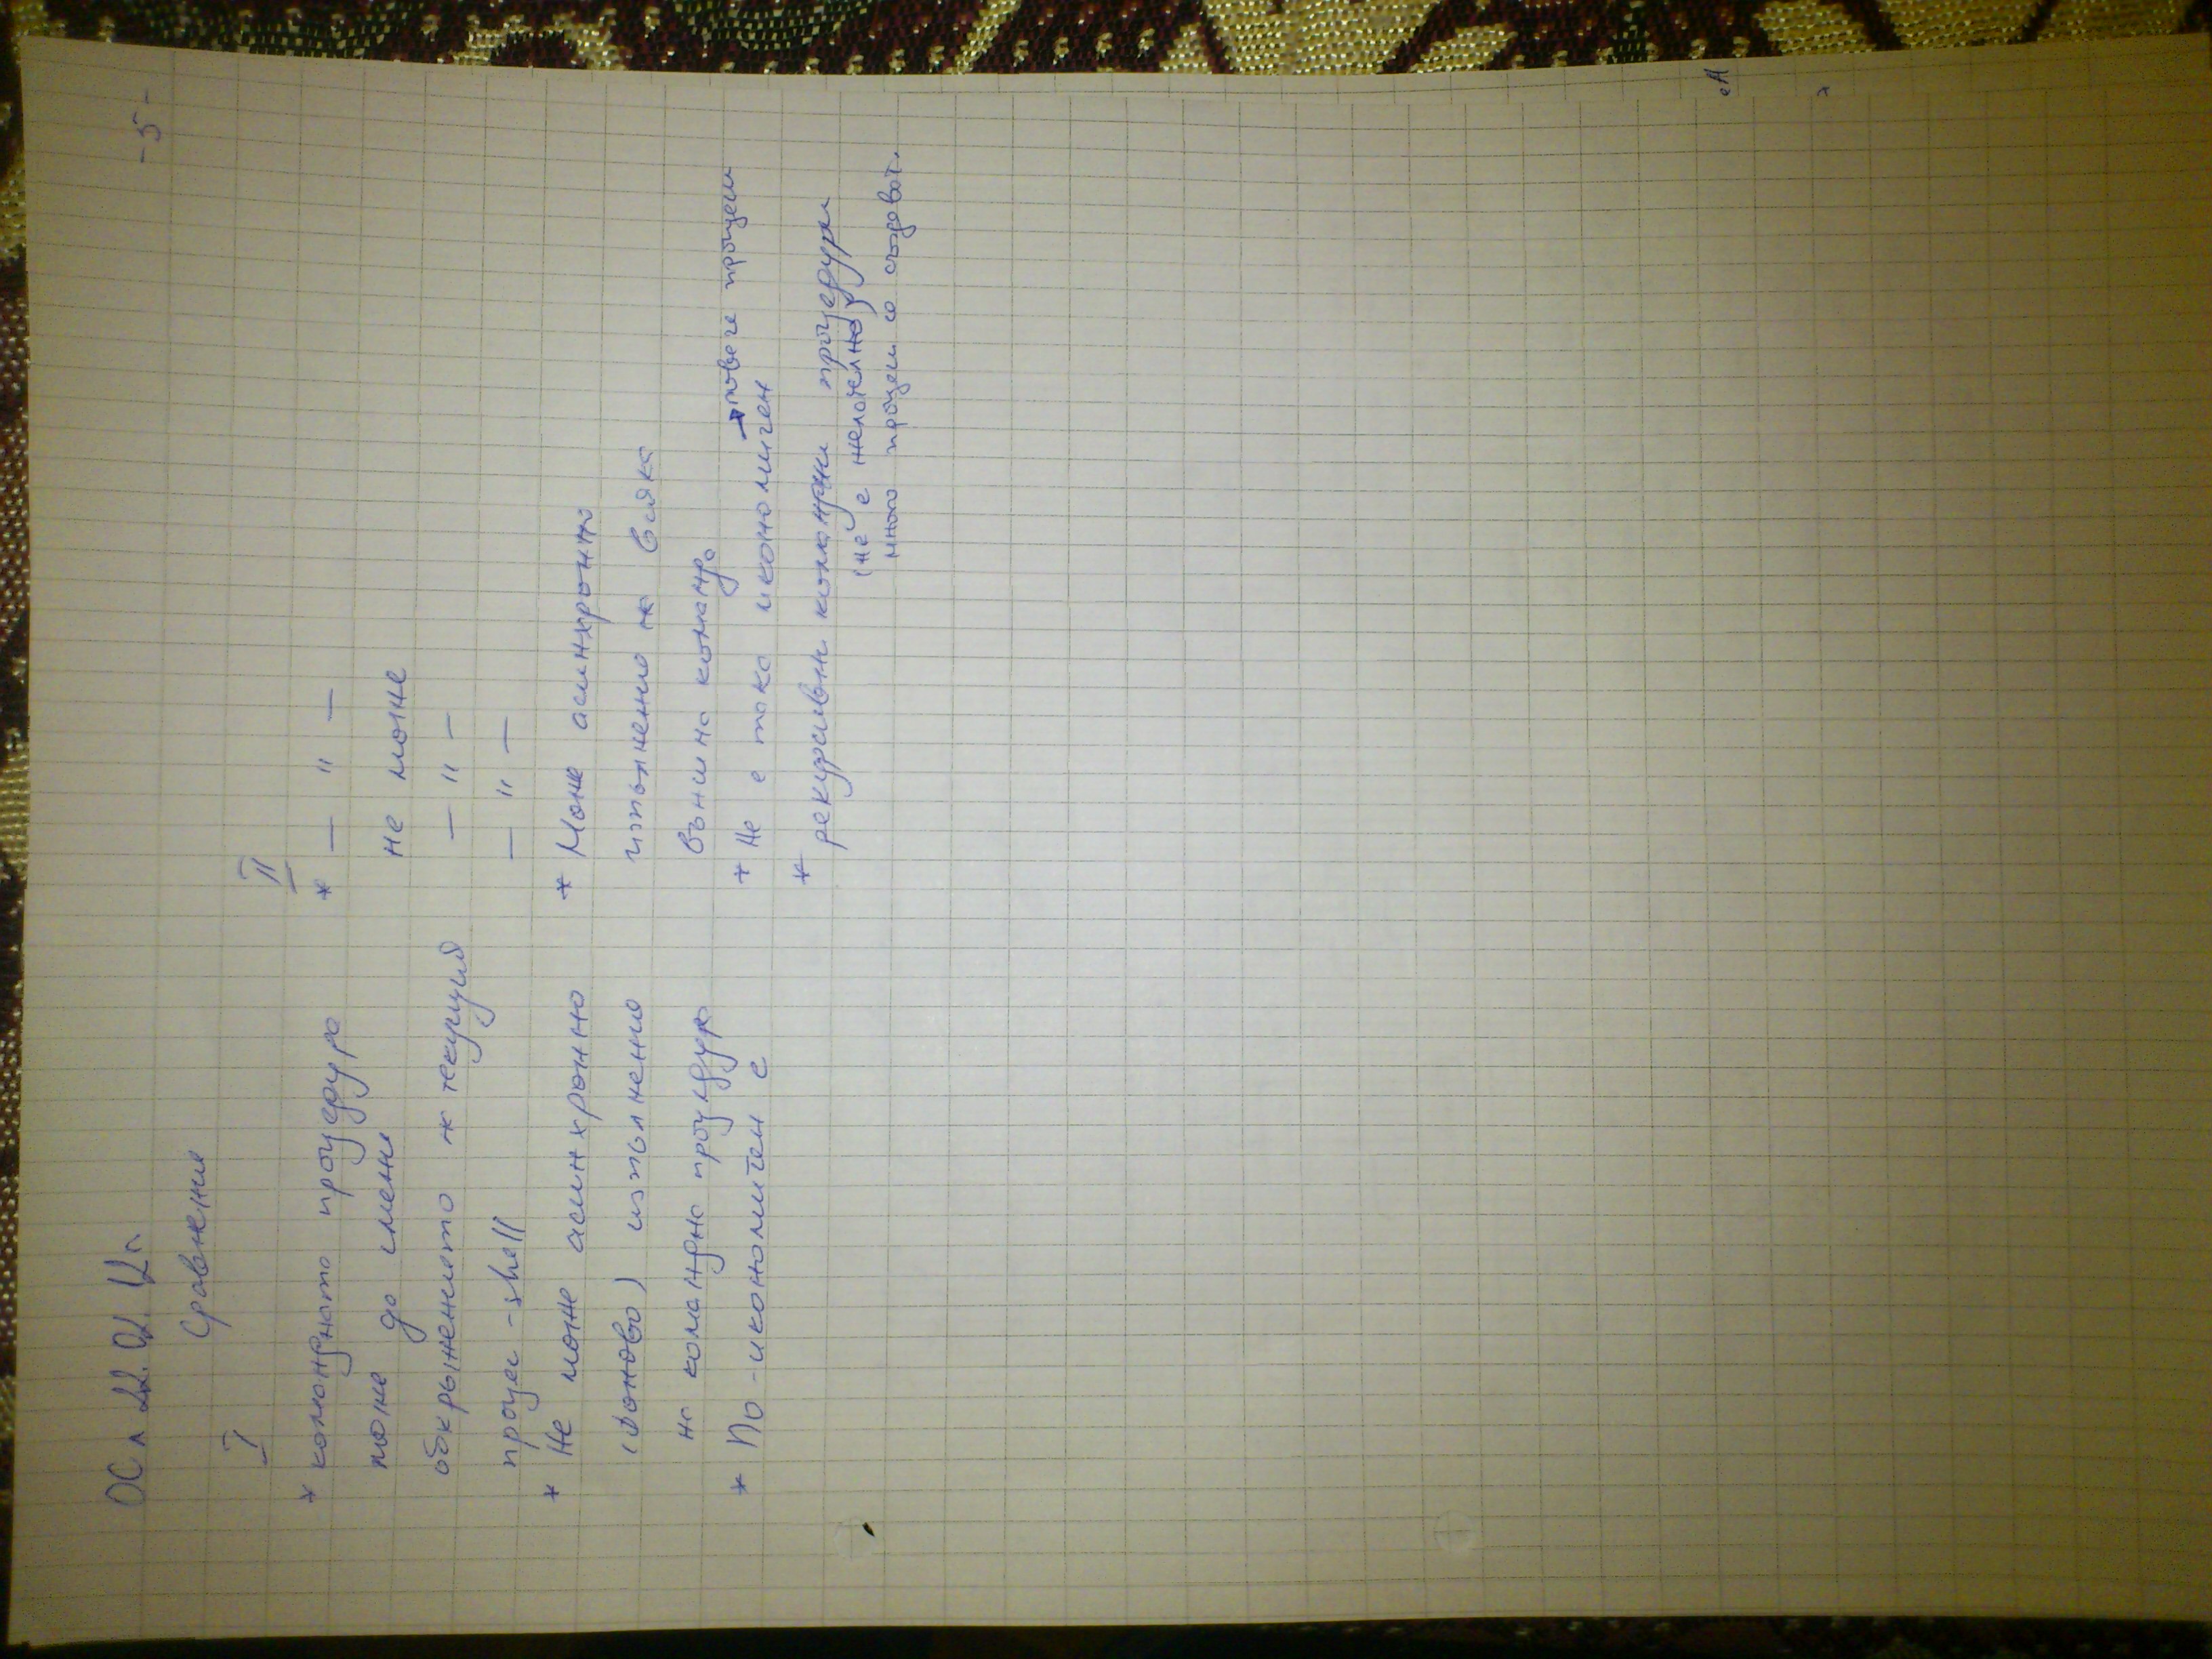 -5-
ОС л 22.02.12г.
Сравнение
I
* командната процедура
може да смени
обкръжението на текущия
процес-shell
* Не може асинхронно
(фоново) изпълнение
на командна процедура
* По-икономичен е
II
* — " —
не може
— " —
— " —
* Може асинхронно
изпълнение на всяка
външна команда
* Не е така икономичен
→ повече процеси
* рекурсивни командни процедури
(не е желателно)
много процеси се създават.